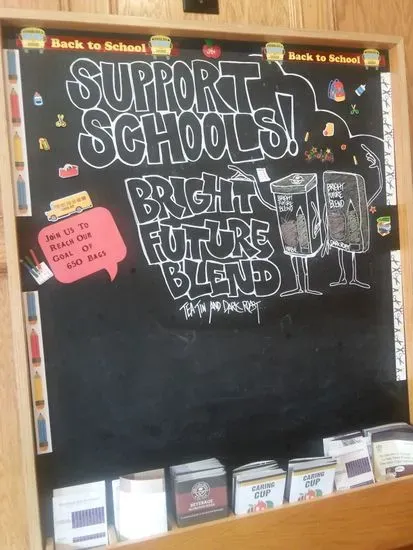 Back to School
Back to School
SUPPORT
SCHOOLS!
BRIGHT
FUTURE
BLEND
TEA TIN AND DARK ROAST
BRIGHT
FUTURE
BLEND
BRIGHT
FUTURE
BLEND
JOIN US TO
REACH OUR
GOAL OF
650 BAGS
BEVERAGE
CARING
CUP
CARING
CUP